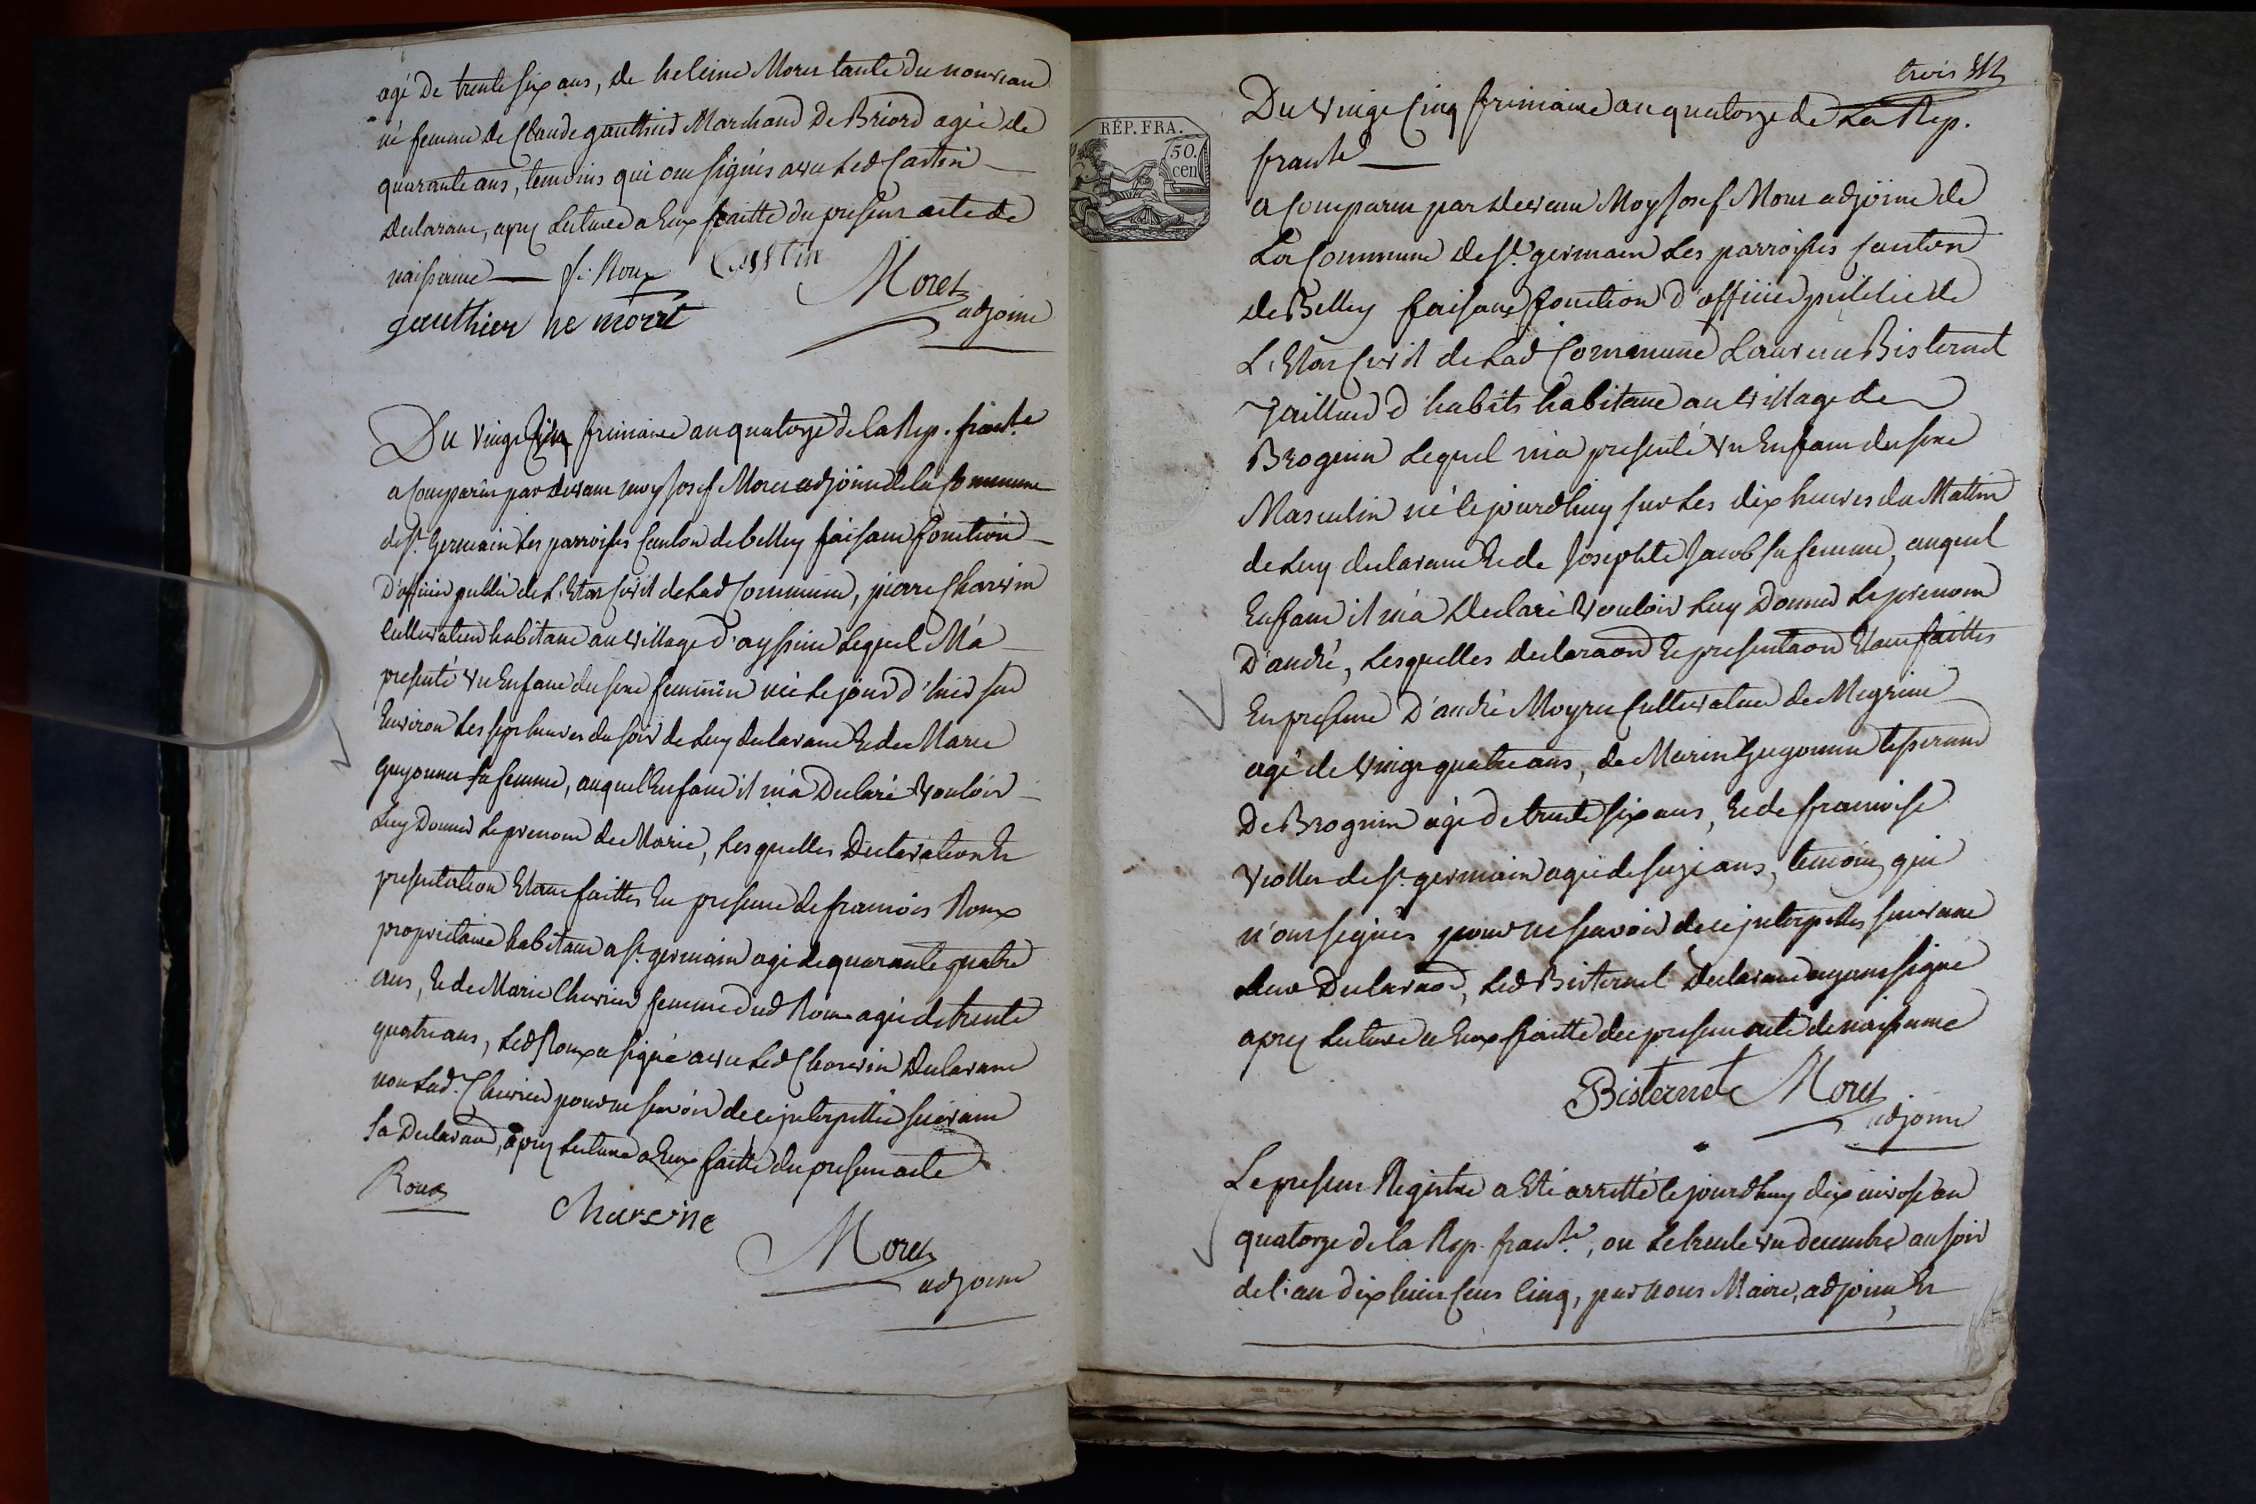 agé de trente six ans, de heleine Moret tante du nouveau
né femme de Claude gauthier Marchand de Briord agée de
quarante ans, temoins qui ont signés avec led Castin
declarant, aprez lecture a Eux faitte du present acte de
naissance — f. Roux Castin
gauthier ne moret Moret
adjoint
Du vingt cinq frimaire an quatorze de la Rep. franse
a comparu par devant moy Josef Moret adjoint de la Commune
de St. Germain les parroisses Canton de belley faisant fonction
D'officier public de L'Etat Civil de lad Commune, pierre Charvin
cultivateur habitant au village d'ayssine lequel M'a
presenté un Enfant du sexe feminin né le jour d'hier sur
Environ les sept heures du soir de luy declarant Et de Marie
guyonnet sa femme, auquel Enfant il m'a Declaré vouloir
luy Donner le prenom de Marie, lesquelles Declaration Et
presentation Etant faittes En presence de francois Roux
proprietaire habitant a St. germain agé de quarante quatre
ans, Et de Marie Cherien femme dud Roux agée de trente
quatre ans, led Roux a signé avec led Charvin Declarant
non lad. Cherien pour ne savoir de ce interpellée suivant
sa Declaraōn, aprez lecture a Eux faitte du present acte
Roux
Charvine
Moret
adjoint
trois
RÉP. FRA.
50.
cen
Du vingt Cinq frimaire an quatorze de La Rep.
franse —
a Comparu par devant Moy Josef Moret adjoint de
La Commune de St. germain les parroisses Canton
de Belley faisant fonction d'officier public de
L'Etat Civil de lad Commune Laurent Bisternet
Taillieur d'habits habitant au village de
Brognin lequel m'a presenté un Enfant du sexe
Masculin né le jourdhuy sur les dix heures du Matin
de luy declarant Et de Josephte Jacob sa femme, auquel
Enfant il m'a Declaré vouloir luy Donner le prenom
D'andré, lesquelles declaraōn Et presentaōn Etant faittes
En presence D'andré Moyret Cultivateur de Megrieu
agé de vingt quatre ans, de Marin guyonnet tisserand
De Brognin agé de trente six ans, Et de francoise
Viollet de St. germain agée de seize ans, temoins qui
n'ont signés pour ne savoir de ce interpellés suivant
leur Declaraōn, led Bisternet declarant ayant signé
aprez lecture a Eux faitte du present acte de naissance
Bisternet Moret
adjoint
Le present Registre a Eté arretté le jourdhuy dix nivose an
quatorze de la Rep. franse, ou le trente un decembre au soir
de l'an dix huit cent Cinq, par nous Maire, adjoint Et